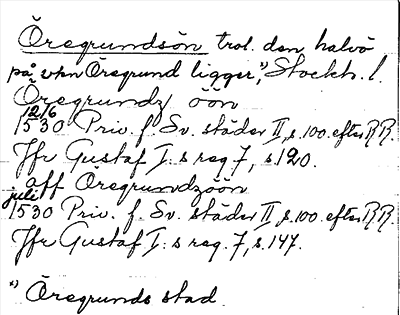 Öregrundsön trol. den halvö
på vkn Öregrund ligger,*) Stockh. l.
Öregrundz öön
12/6
1530 Priv. f. Sv. städer II, s. 100. efter R.R.
Jfr Gustaf I:s reg. 7, s. 120.
aff Öregrundzöön
juli
1530 Priv. f. Sv. städer II, s. 100. efter R.R.
Jfr Gustaf I:s reg. 7, s. 147.
*) Öregrunds stad